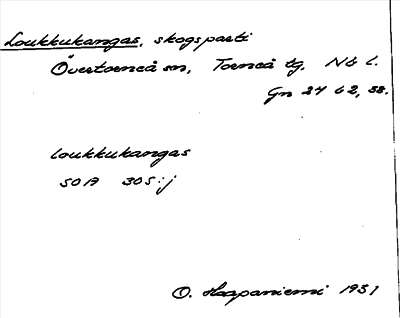 Loukkukangas, skogsparti
Övertorneå sn, Torneå tg. Nb l.
Gn 24 b2, 58.
loukkukangas
SOA 305:j
O. Haapaniemi 1931